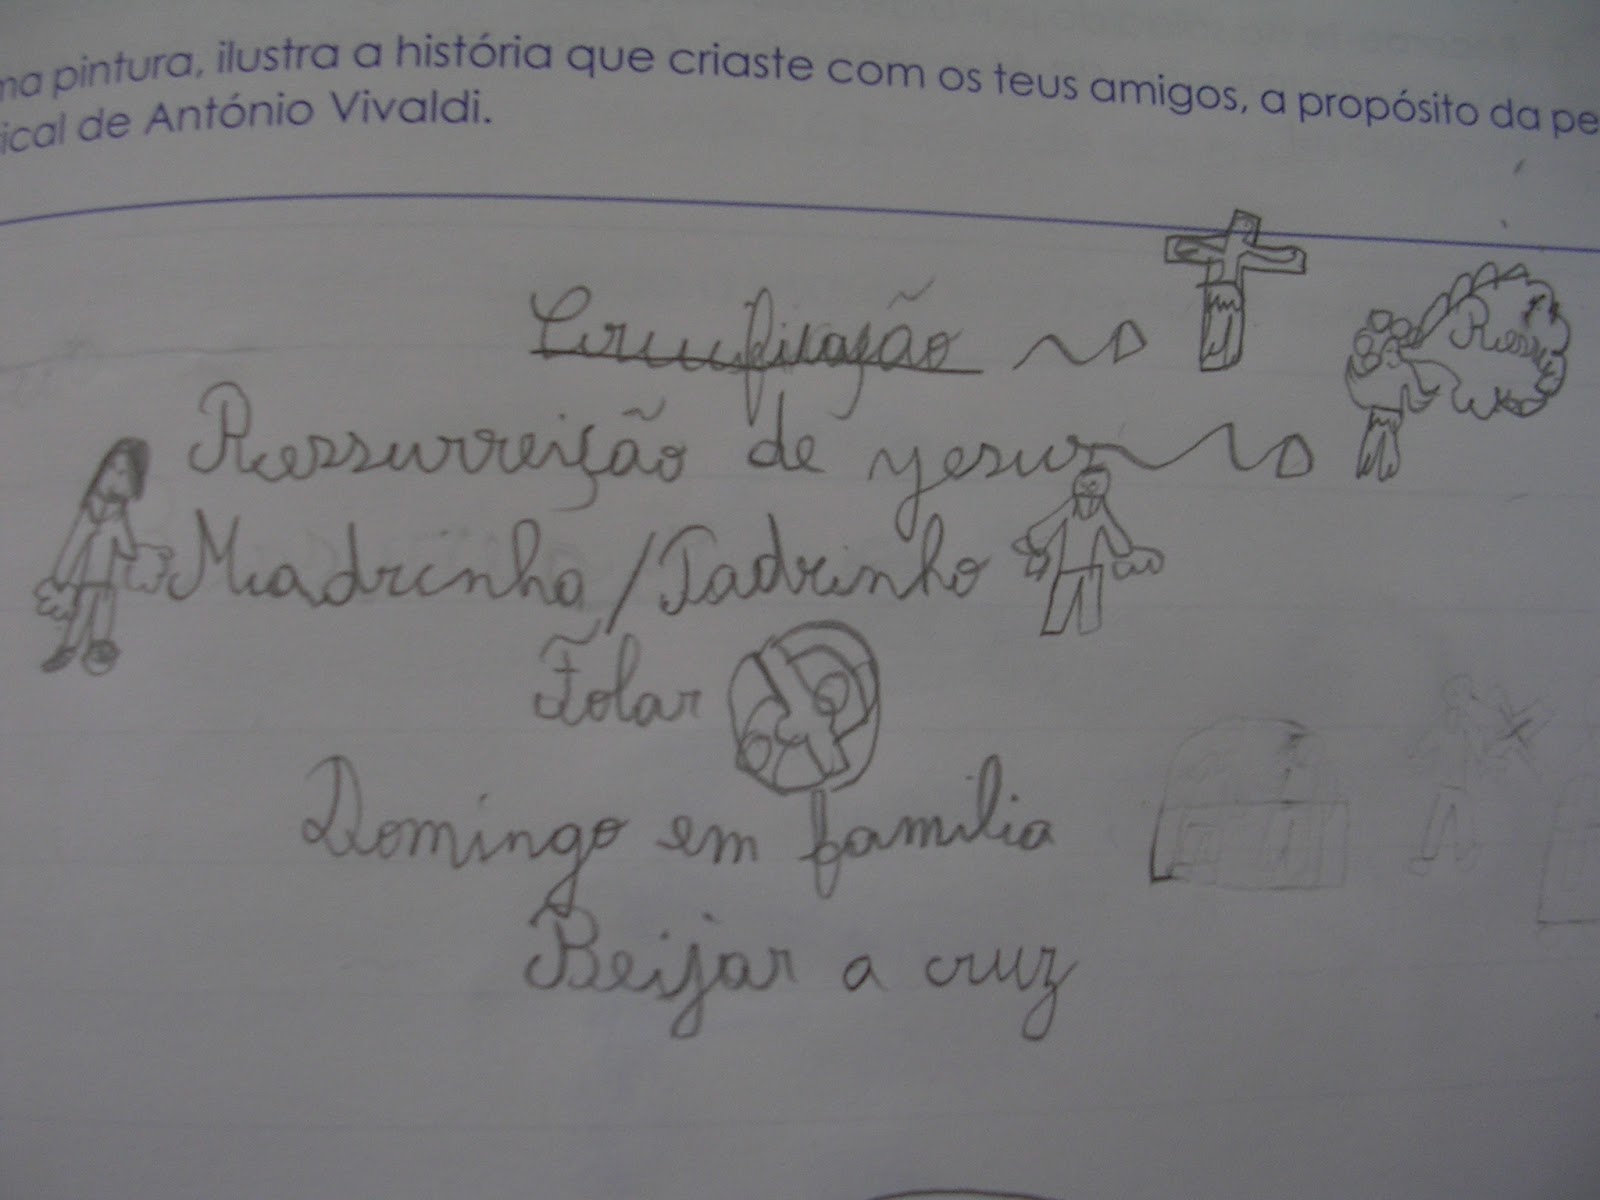 ma pintura, ilustra a história que criaste com os teus amigos, a propósito da pe
ical de António Vivaldi.
Crucificação
Ressurreição de yesus
Madrinha / Padrinho
Folar
Domingo em família
Beijar a cruz